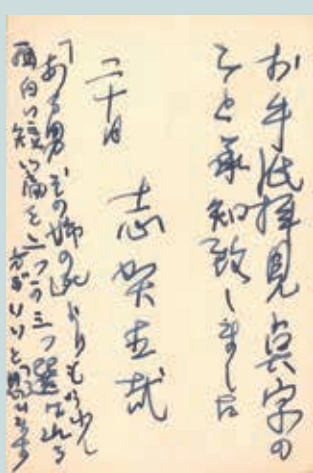 お手紙拝見 点字の
こと承知致しました
二十日
志賀直哉
「ある男その姉の死」よりも少し
面白い短い篇を二つか三つ選ばれる
方がいいと思ひます